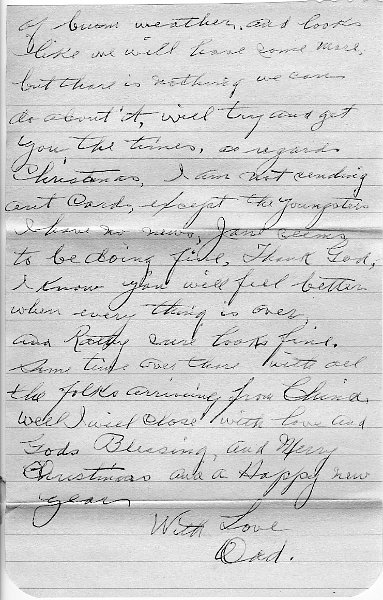 of bum weather, and looks
like we will have some more,
but there is nothing we can
do about it, will try and get
you the times, as regards
Christmas, I am not sending
out Cards, except the youngsters
I have no news, Jane seems
to be doing fine, Thank God,
I know you will feel better
when every thing is over,
and Kathy sure looks fine.
some time over there with all
the folks arriving from
Well I will close with love and
Gods Blessing, and Merry
Christmas and a Happy new
year
With Love
Dad.